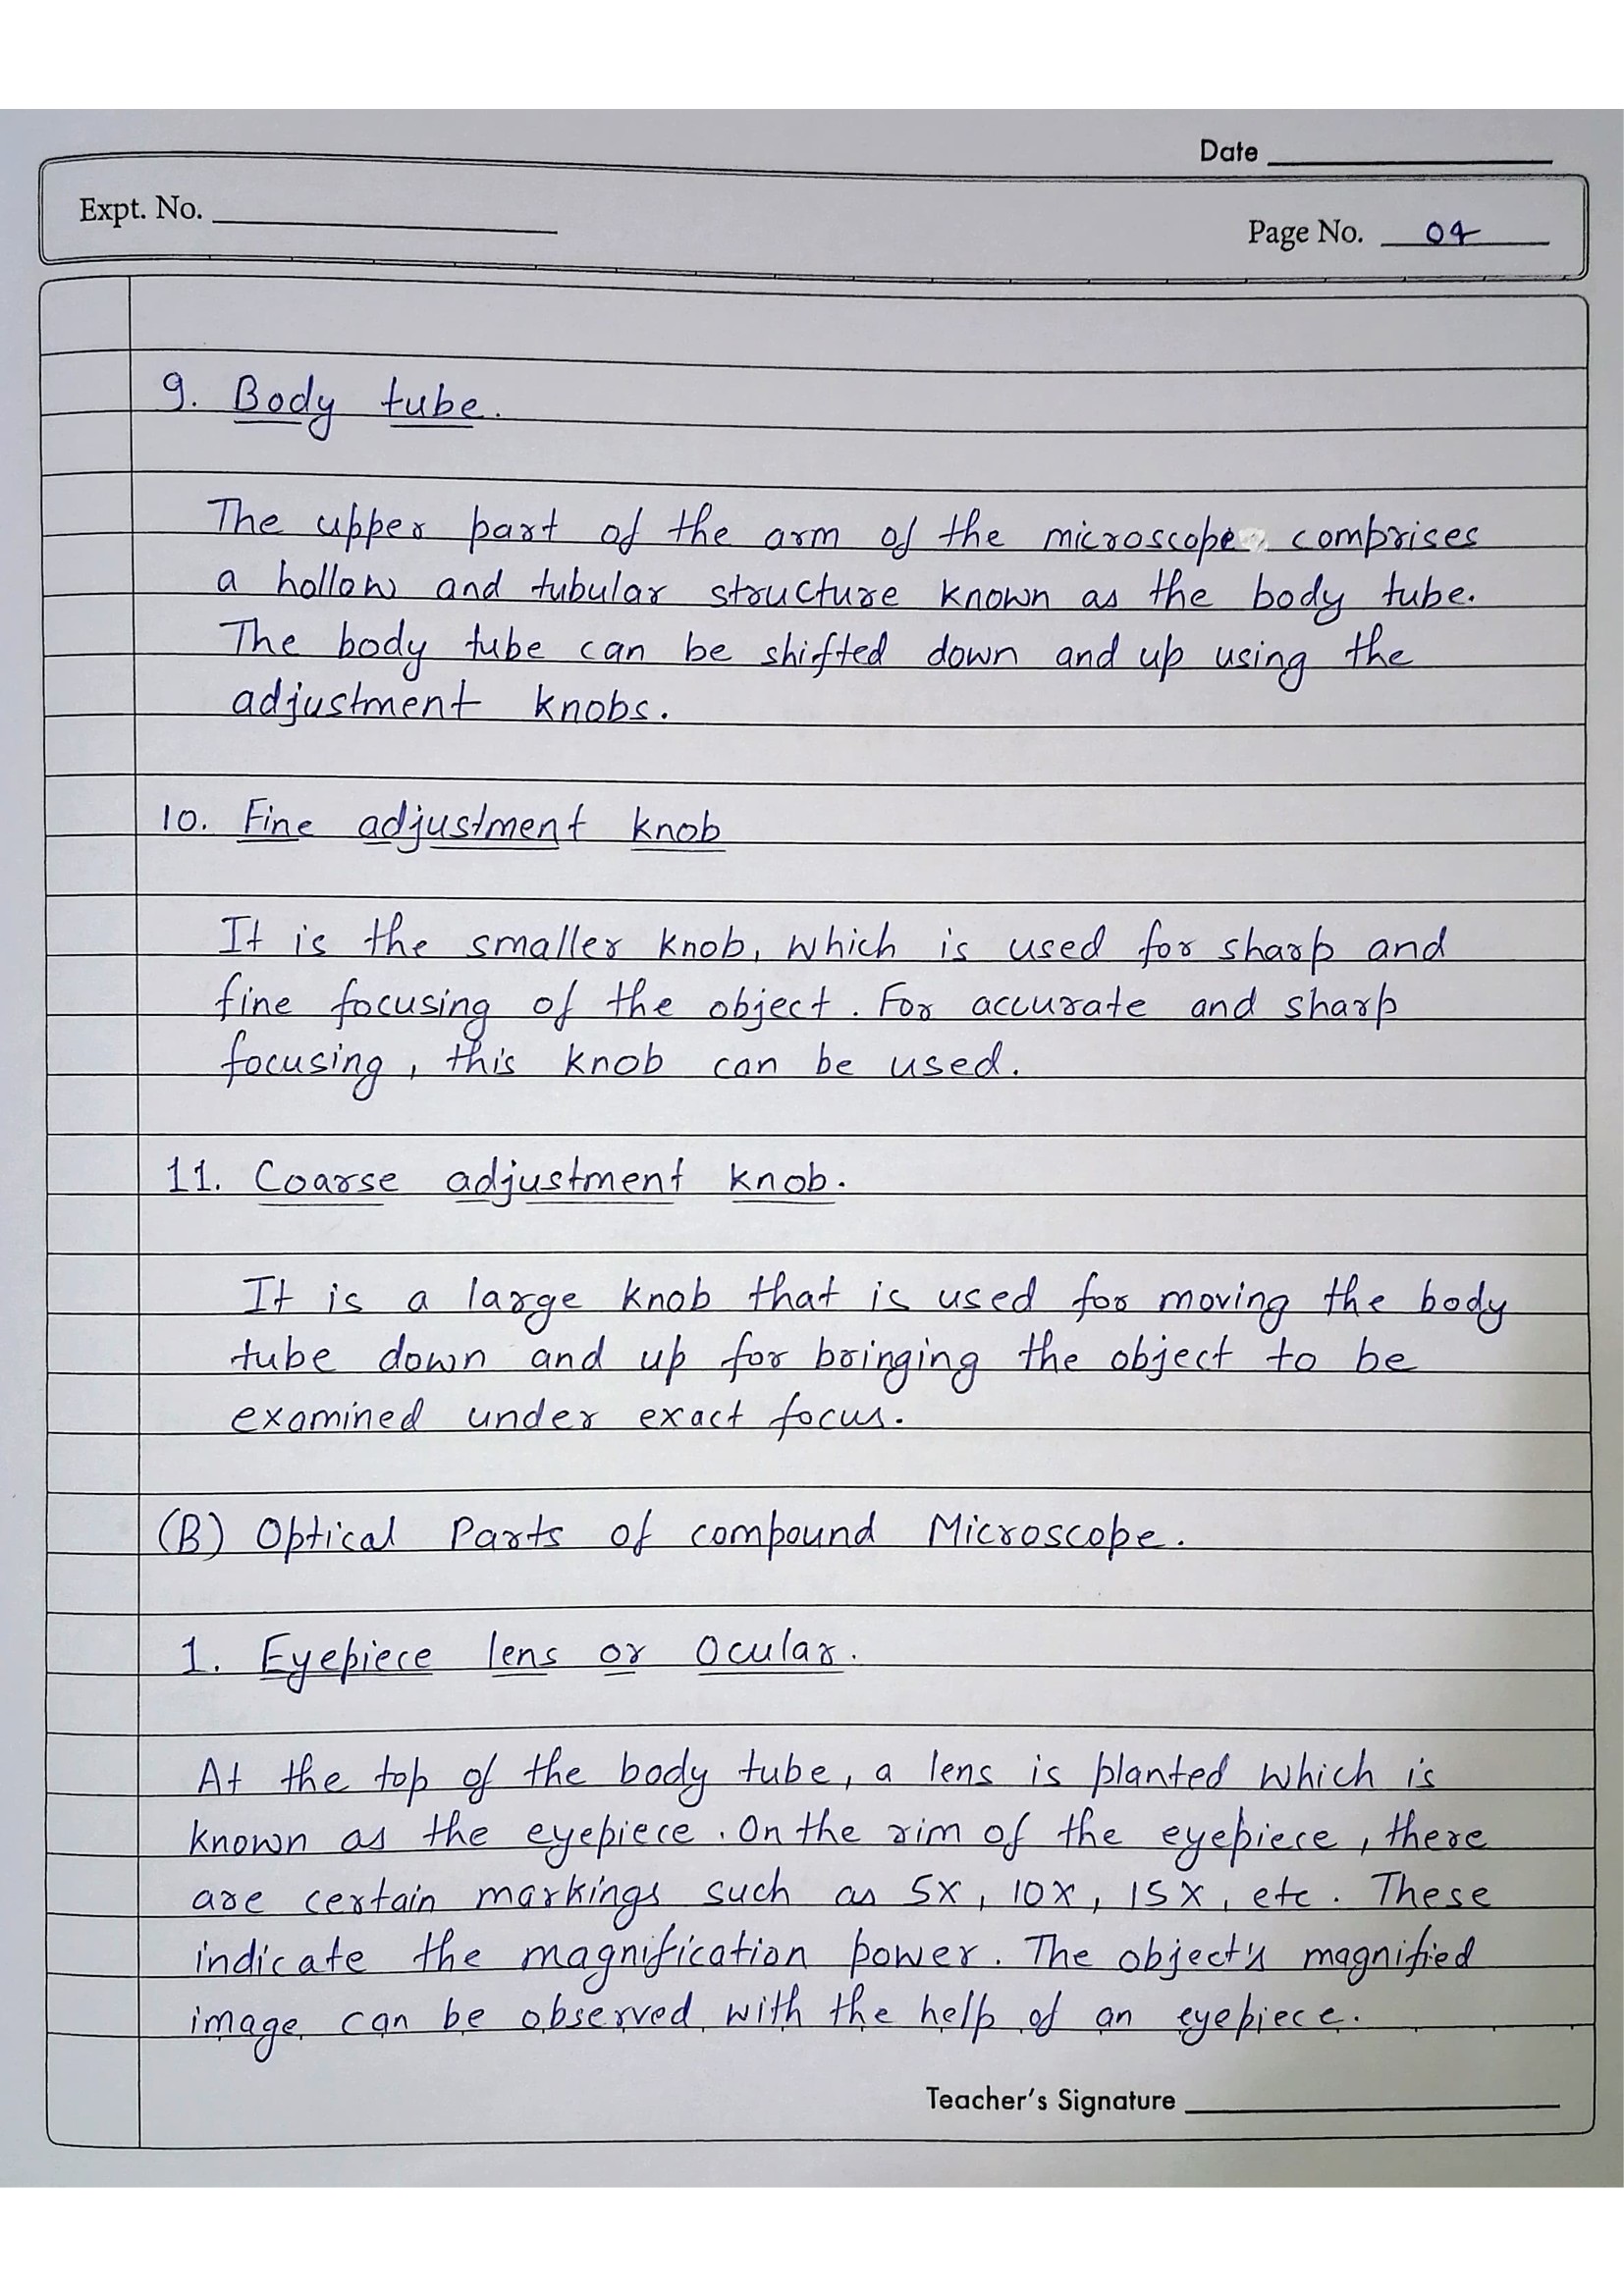 Date
Expt. No.
Page No. 04
9. Body tube.
The upper part of the arm of the microscope comprises
a hollow and tubular structure known as the body tube.
The body tube can be shifted down and up using the
adjustment knobs.
10. Fine adjustment knob
It is the smaller knob, which is used for sharp and
fine focusing of the object. For accurate and sharp
focusing, this knob can be used.
11. Coarse adjustment knob.
It is a large knob that is used for moving the body
tube down and up for bringing the object to be
examined under exact focus.
(B) Optical Parts of compound Microscope.
1. Eyepiece lens or Ocular.
At the top of the body tube, a lens is planted which is
known as the eyepiece. On the rim of the eyepiece, there
are certain markings such as 5X, 10X, 15X, etc. These
indicate the magnification power. The object's magnified
image can be observed with the help of an eyepiece.
Teacher's Signature